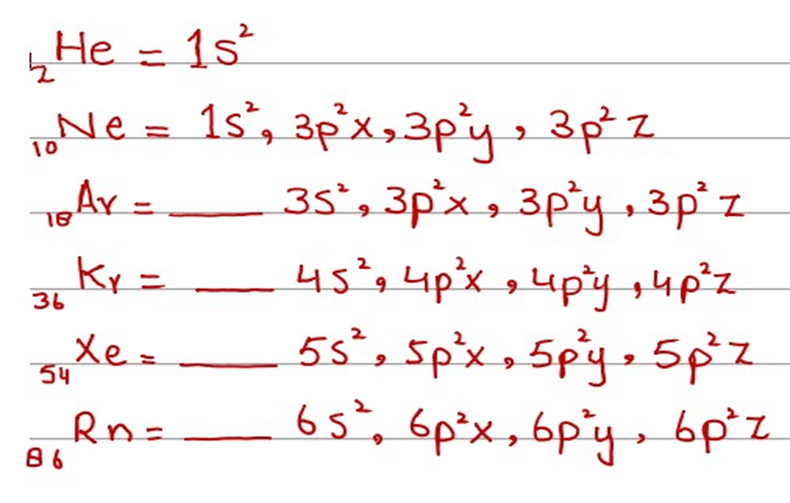 ₂He = 1s²
₁₀Ne = 1s², 3p²x, 3p²y, 3p²z
₁₈Ar = ____ 3s², 3p²x, 3p²y, 3p²z
₃₆Kr = ____ 4s², 4p²x, 4p²y, 4p²z
₅₄Xe = ____ 5s², 5p²x, 5p²y, 5p²z
₈₆Rn = ____ 6s², 6p²x, 6p²y, 6p²z